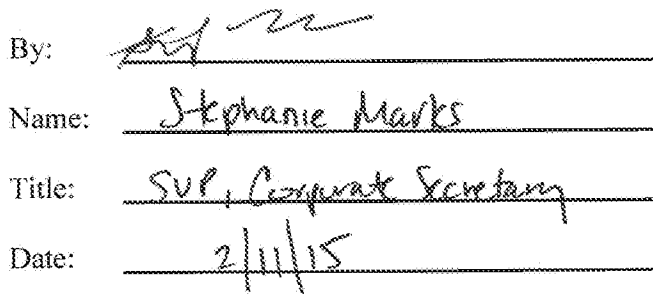 By:
Name: Stephanie Marks
Title: SVP, Corporate Secretary
Date: 2/11/15